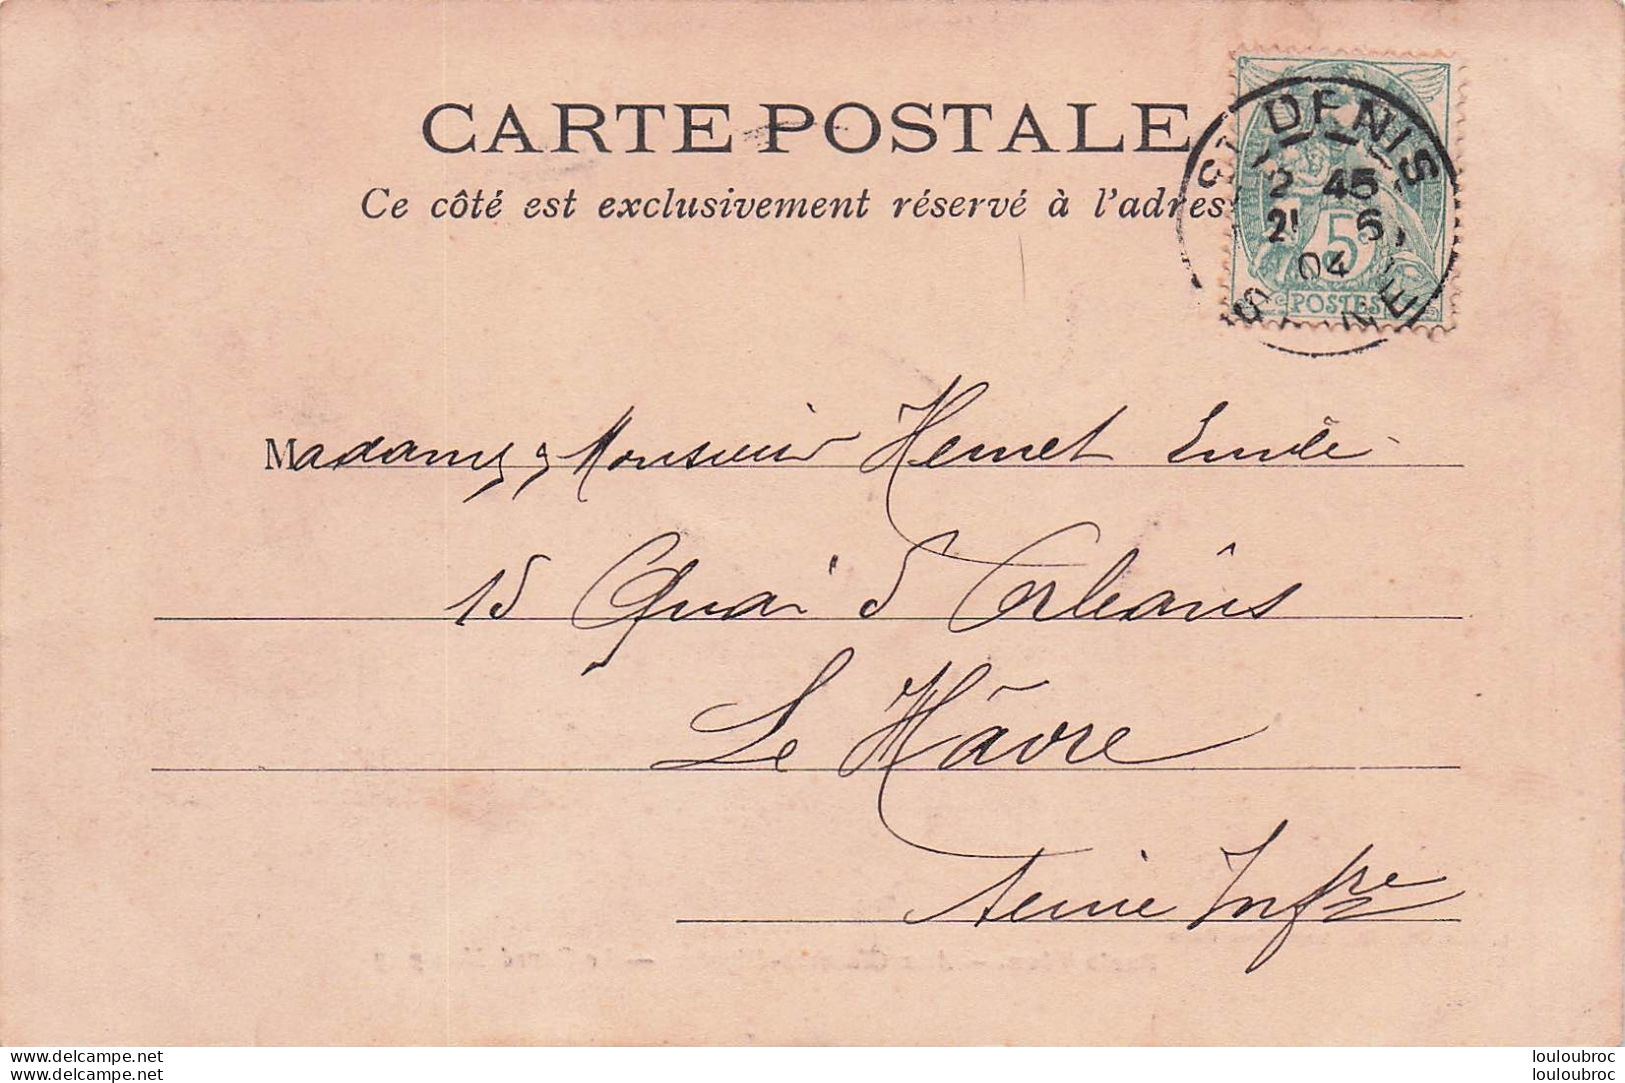 CARTE POSTALE
Ce côté est exclusivement réservé à l'adres
ST DENIS
2 45
21 6
04
SEINE
5c
POSTES
Madame & Monsieur Hemet Emile
15 Quai d'Orléans
Le Hâvre
Seine Infre
www.delcampe.net
louloubroc
www.delcampe.net
louloubroc